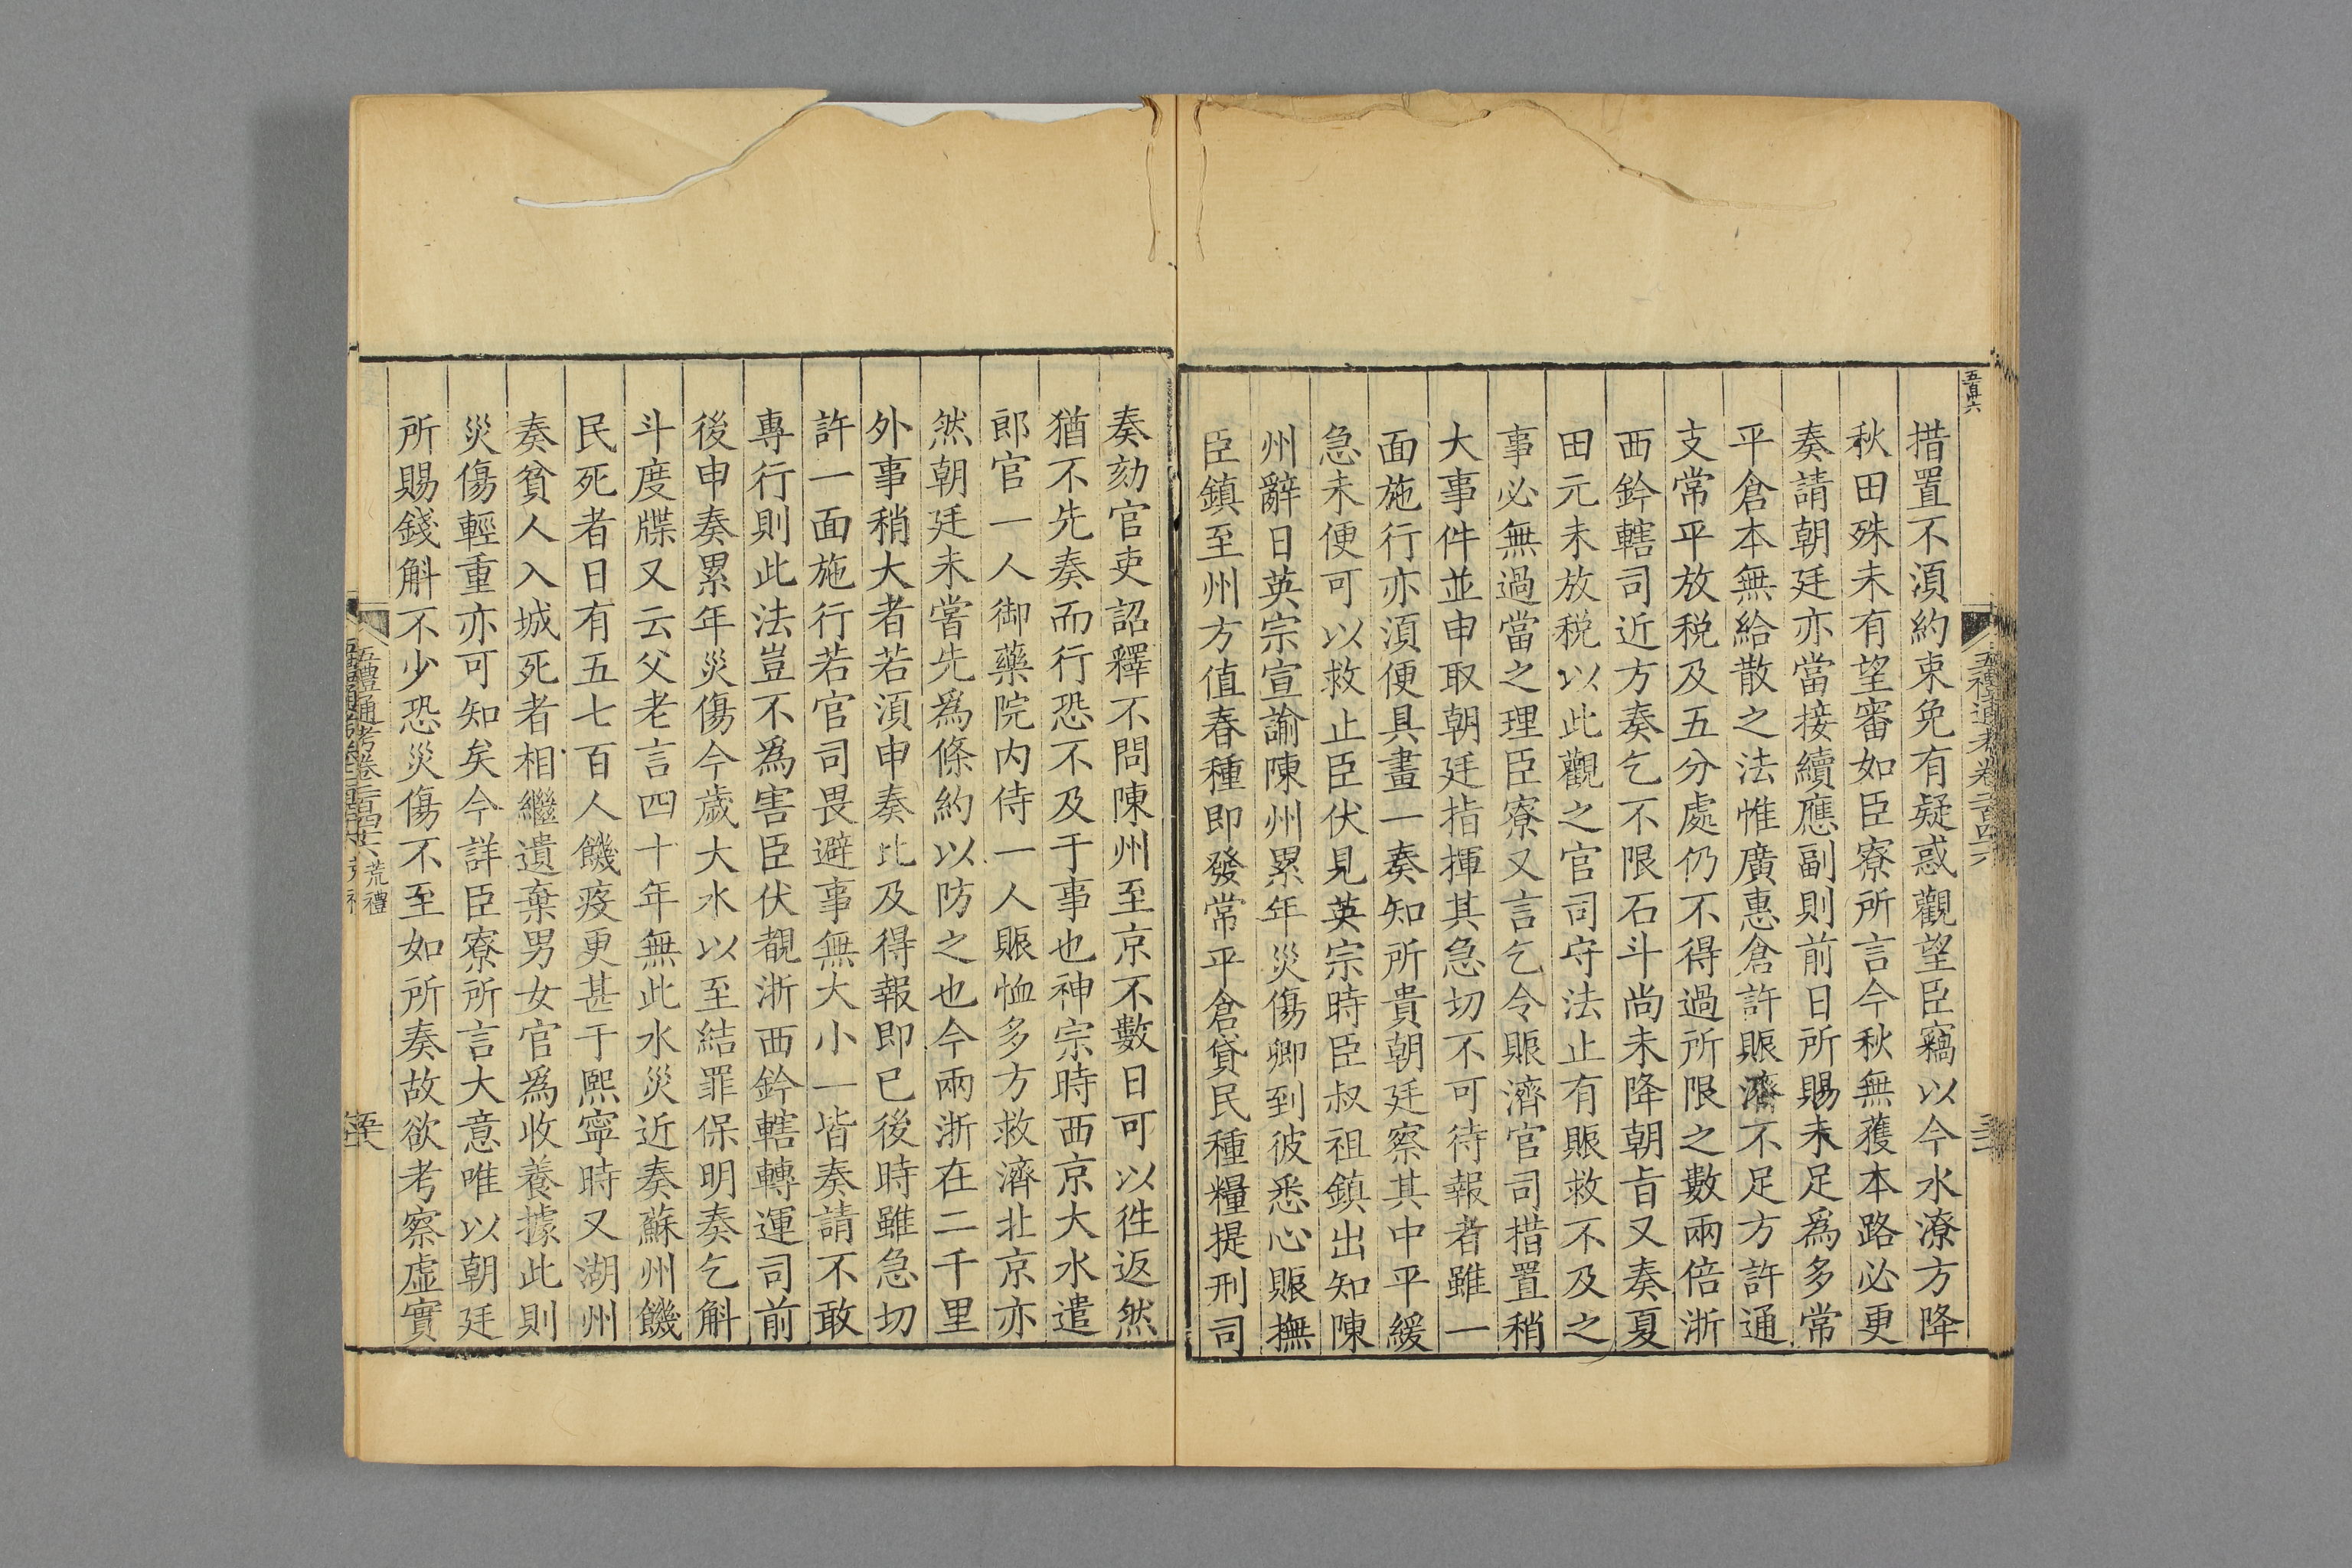 措置不湏約束免有疑惑觀望臣竊以今水潦方降
秋田殊未有望審如臣寮所言今秋無獲本路必更
奏請朝廷亦當接續應副則前日所賜未足爲多常
平倉本無給散之法惟廣惠倉許賑濟不足方許通
支常平放税及五分處仍不得過所限之數兩倍浙
西鈐轄司近方奏乞不限石斗尚未降朝㫖又奏夏
田元未放税以此觀之官司守法止有賑救不及之
事必無過當之理臣寮又言乞令賑濟官司措置稍
大事件並申取朝廷指揮其急切不可待報者雖一
面施行亦湏便具畫一奏知所貴朝廷察其中平緩
急未便可以救止臣伏見英宗時臣叔祖鎮出知陳
州辭日英宗宣諭陳州累年災傷卿到彼悉心賑撫
臣鎮至州方值春種即發常平倉貸民種糧提刑司
奏劾官吏詔釋不問陳州至京不數日可以徃返然
猶不先奏而行恐不及于事也神宗時西京大水遣
郎官一人御藥院内侍一人賑恤多方救濟北京亦
然朝廷未嘗先爲條約以防之也今兩浙在二千里
外事稍大者若湏申奏比及得報即已後時雖急切
許一面施行若官司畏避事無大小一皆奏請不敢
專行則此法豈不爲害臣伏覩浙西鈐轄轉運司前
後申奏累年災傷今歲大水以至結罪保明奏乞斛
斗度牒又云父老言四十年無此水災近奏蘇州饑
民死者日有五七百人饑疫更甚于熙寧時又湖州
奏貧人入城死者相繼遺棄男女官爲收養據此則
災傷輕重亦可知矣今詳臣寮所言大意唯以朝廷
所賜錢斛不少恐災傷不至如所奏故欲考察虛實
五禮通考卷二百四十六 荒禮